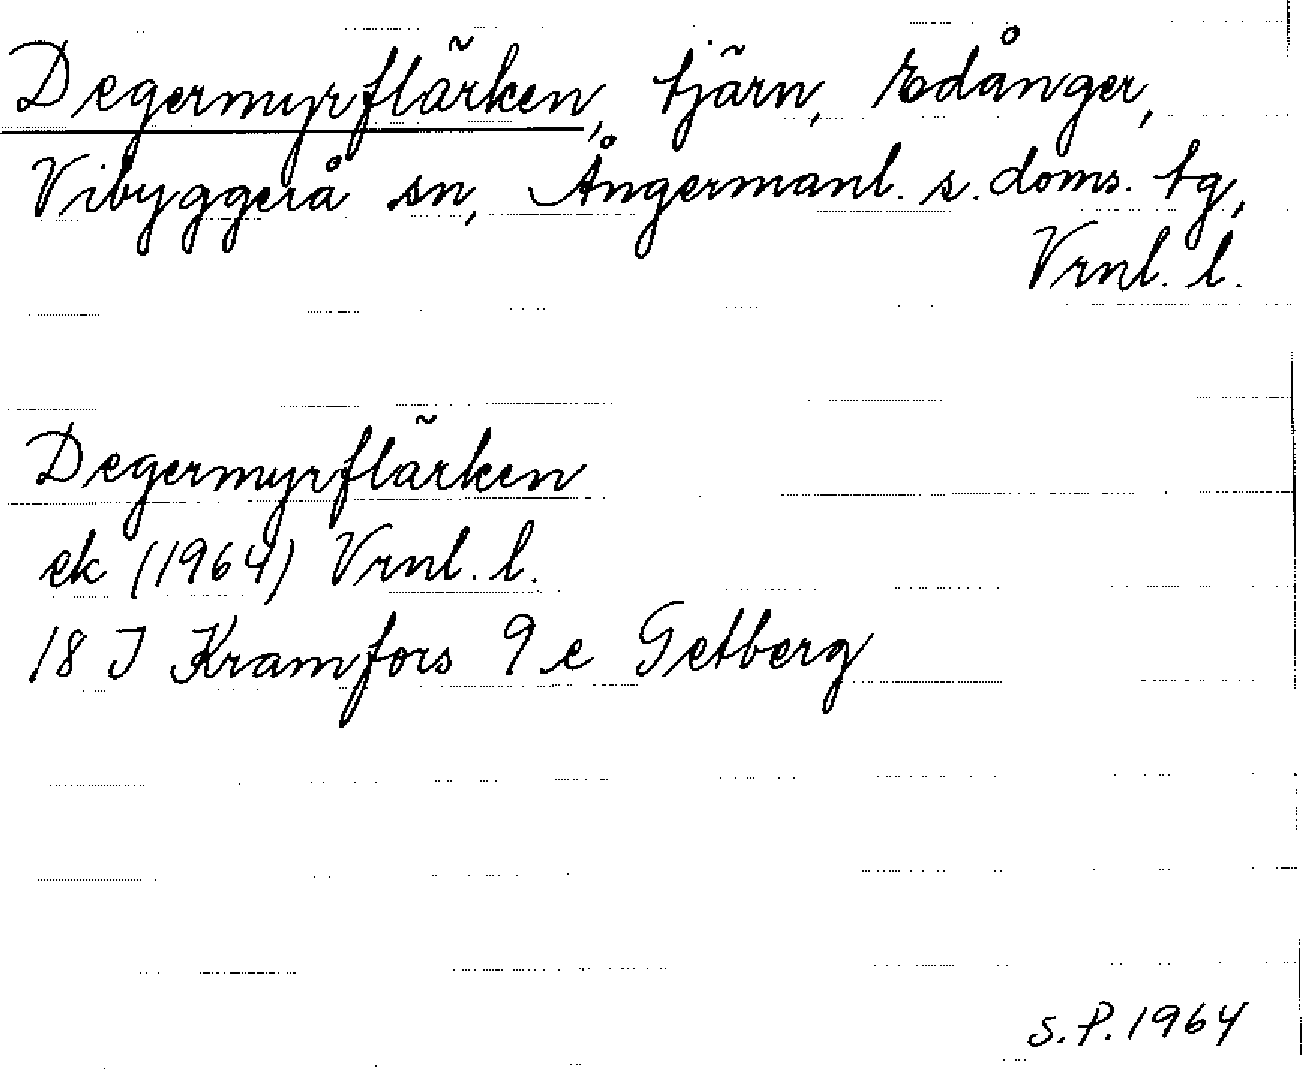 Degermyrflärken, tjärn, Edånger,
Vibyggerå sn, Ångermanl. s. doms. tg,
Vrnl. l.
Degermyrflärken
ek (1964) Vrnl. l.
18 J Kramfors 9 e Getberg
S.P. 1964